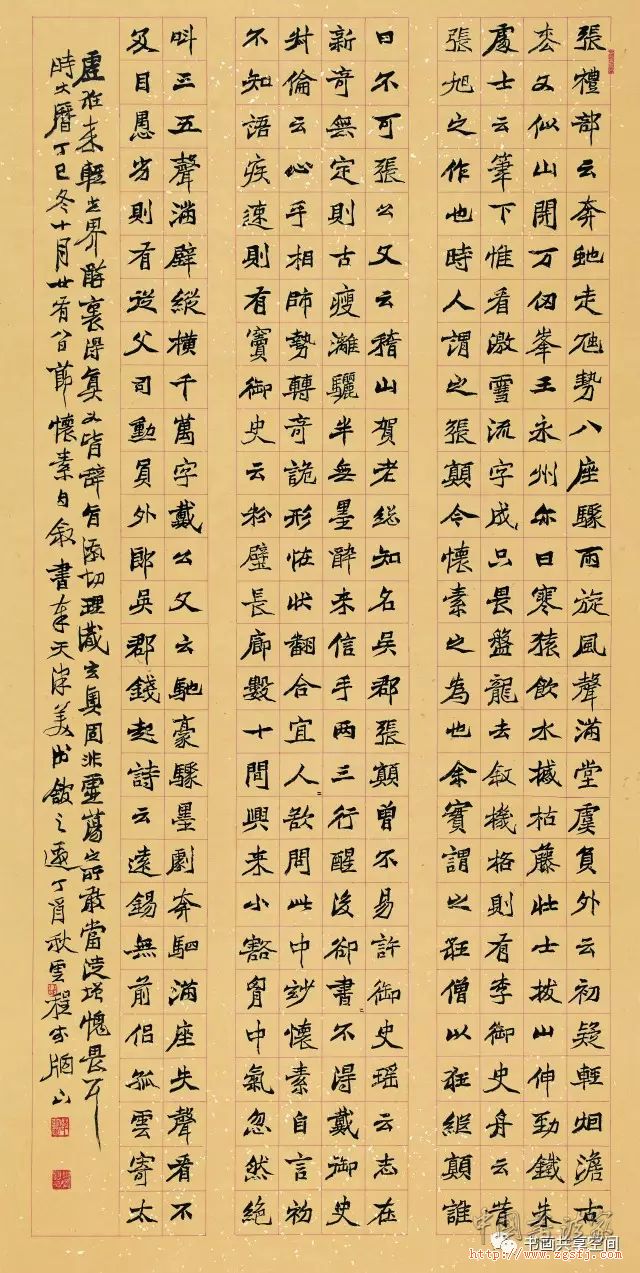 張禮部云奔虵走虺勢八座驟雨旋風聲滿堂虞負外云初疑輕烟澹古
枩又似山開万仞峯王永州亦曰寒猿飲水撼枯藤壮士拔山伸勁鐵朱
處士云筆下惟看激電流字成只畏盤龍去叙機格則有李御史舟云昔
張旭之作也時人謂之張顛今懷素之為也余實謂之狂僧以狂継顛誰
曰不可張公又云稽山賀老総知名吳郡張顛曾不易許御史瑶云志在
新奇無定則古瘦灕驪半無墨醉来信手兩三行醒後卻書不得戴御史
叔倫云心手相師勢轉奇詭形恠状翻合宜人〻欲問此中妙懷素自言初
不知語疾速則有竇御史云粉壁長廊數十間興来小豁胷中氣忽然絶
叫三五聲滿壁縱横千萬字戴公又云馳豪驟墨劇奔駟滿座失聲看不
及目愚劣則有從父司勳員外郎吳郡錢起詩云遠錫無前侣孤雲寄太
虚狂来輕世界醉裏得真如皆辭旨激切理識玄奥固非虚蕩之所敢當徒增愧畏耳
時大曆丁巳冬十月廿有八日節懷素自叙書奉天津美術館之邀丁酉秋雲程
书画共享空间
http://www.zgsfj.com